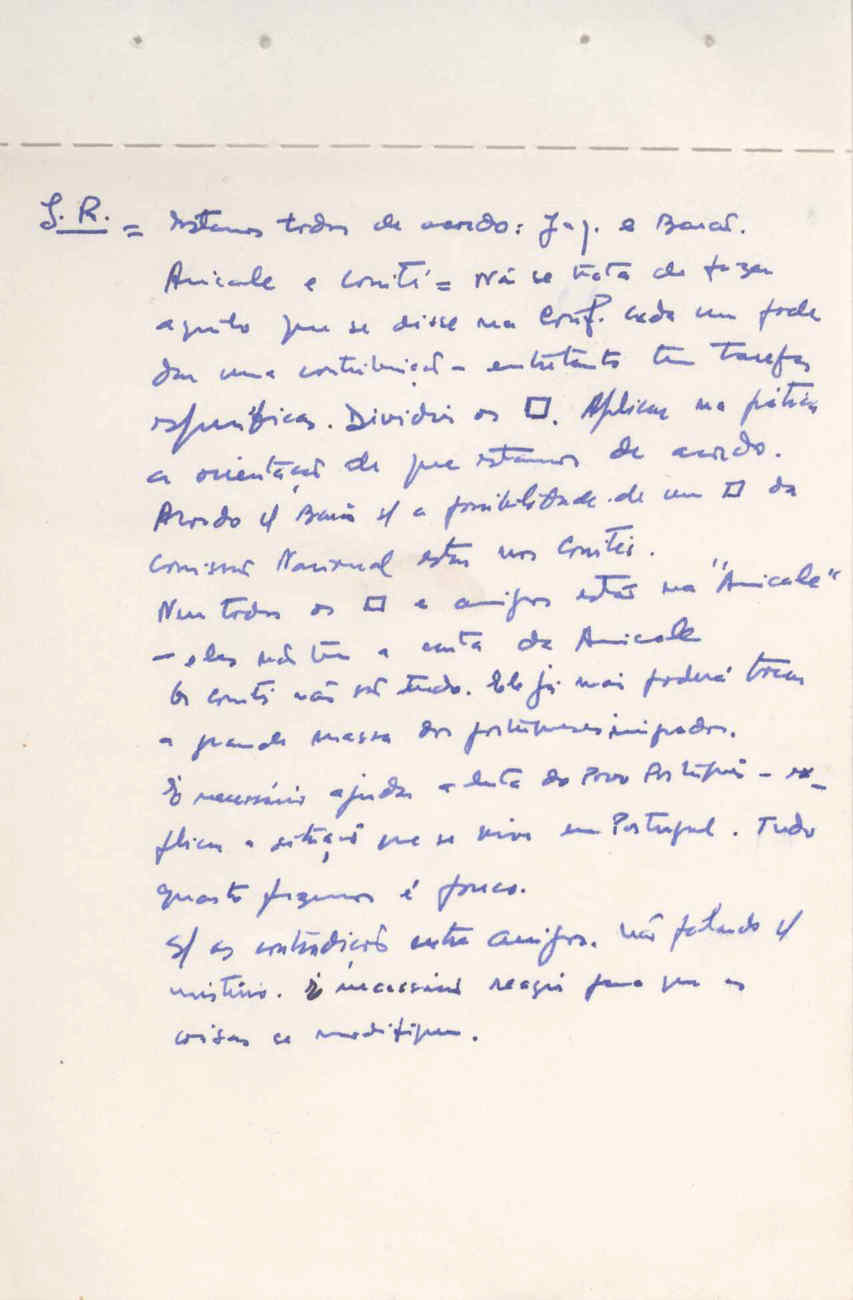 S. R. = Estamos todos de acordo: Jaq. e Baião.
Amicale e Comité = Não se trata de fazer
aquilo que se disse na Conf. cada um pode
dar uma contribuição - entretanto tem tarefas
específicas. Dividir os □. Aplicar na prática
a orientação de que estamos de acordo.
Acordo c/ Baião s/ a possibilidade de um □ da
Comissão Nacional estar nos Comités.
Nem todos os □ e amigos estão na "Amicale"
- eles não têm a carta da Amicale
Os comité não são tudo. Ele já mais poderá tocar
a grande massa dos portugueses imigrados.
É necessário ajudar a luta do Povo Português - ex-
plicar a situação que se vive em Portugal. Tudo
quanto fizermos é pouco.
S/ as contradições entre amigos. Não falando c/
mistério. É necessário reagir para que as
coisas se modifiquem.